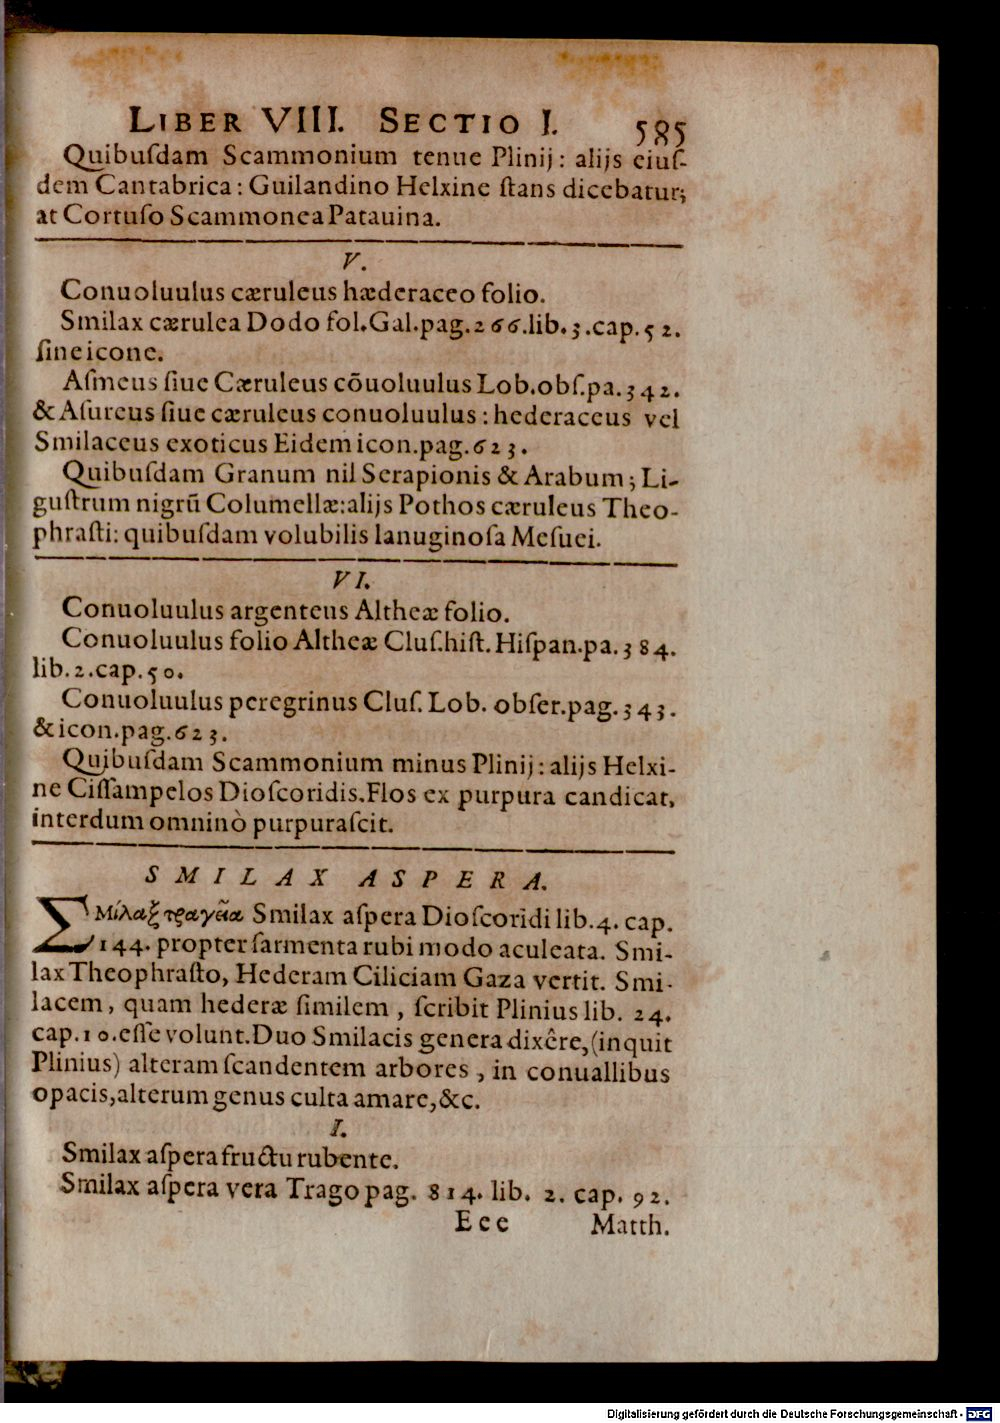 LIBER VIII. SECTIO I. 585
Quibuſdam Scammonium tenue Plinij: alijs eiuſ-
dem Cantabrica: Guilandino Helxine ſtans dicebatur;
at Cortuſo Scammonea Patauina.
V.
Conuoluulus cæruleus hæderaceo folio.
Smilax cærulea Dodo fol. Gal. pag. 266. lib. 3. cap. 52.
ſine icone.
Aſmeus ſiue Cæruleus cõuoluulus Lob. obſ. pa. 342.
& Aſureus ſiue cæruleus conuoluulus: hederaceus vel
Smilaceus exoticus Eidem icon. pag. 623.
Quibuſdam Granum nil Serapionis & Arabum; Li-
guſtrum nigrũ Columellæ: alijs Pothos cæruleus Theo-
phraſti: quibuſdam volubilis lanuginoſa Meſuei.
VI.
Conuoluulus argenteus Altheæ folio.
Conuoluulus folio Altheæ Cluſ. hiſt. Hiſpan. pa. 384.
lib. 2. cap. 50.
Conuoluulus peregrinus Cluſ. Lob. obſer. pag. 343.
& icon. pag. 623.
Quibuſdam Scammonium minus Plinij: alijs Helxi-
ne Ciſſampelos Dioſcoridis. Flos ex purpura candicat,
interdum omninò purpuraſcit.
SMILAX ASPERA.
Σμίλαξ τραχεῖα Smilax aſpera Dioſcoridi lib. 4. cap.
144. propter ſarmenta rubi modo aculeata. Smi-
lax Theophraſto, Hederam Ciliciam Gaza vertit. Smi-
lacem, quam hederæ ſimilem, ſcribit Plinius lib. 24.
cap. 10. eſſe volunt. Duo Smilacis genera dixêre, (inquit
Plinius) alteram ſcandentem arbores, in conuallibus
opacis, alterum genus culta amare, &c.
I.
Smilax aſpera fructu rubente.
Smilax aſpera vera Trago pag. 814. lib. 2. cap. 92.
Eee Matth.
Digitalisierung gefördert durch die Deutsche Forschungsgemeinschaft - DFG